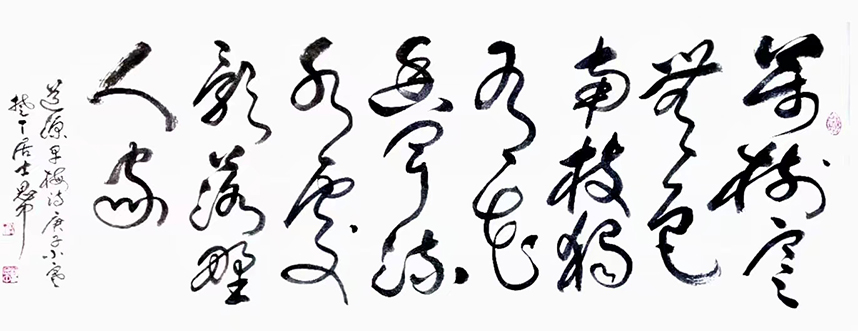 萬樹寒
無色
南枝獨
有花
香聞流
水處
影落野
人家
道源早梅詩庚子小寒
居士